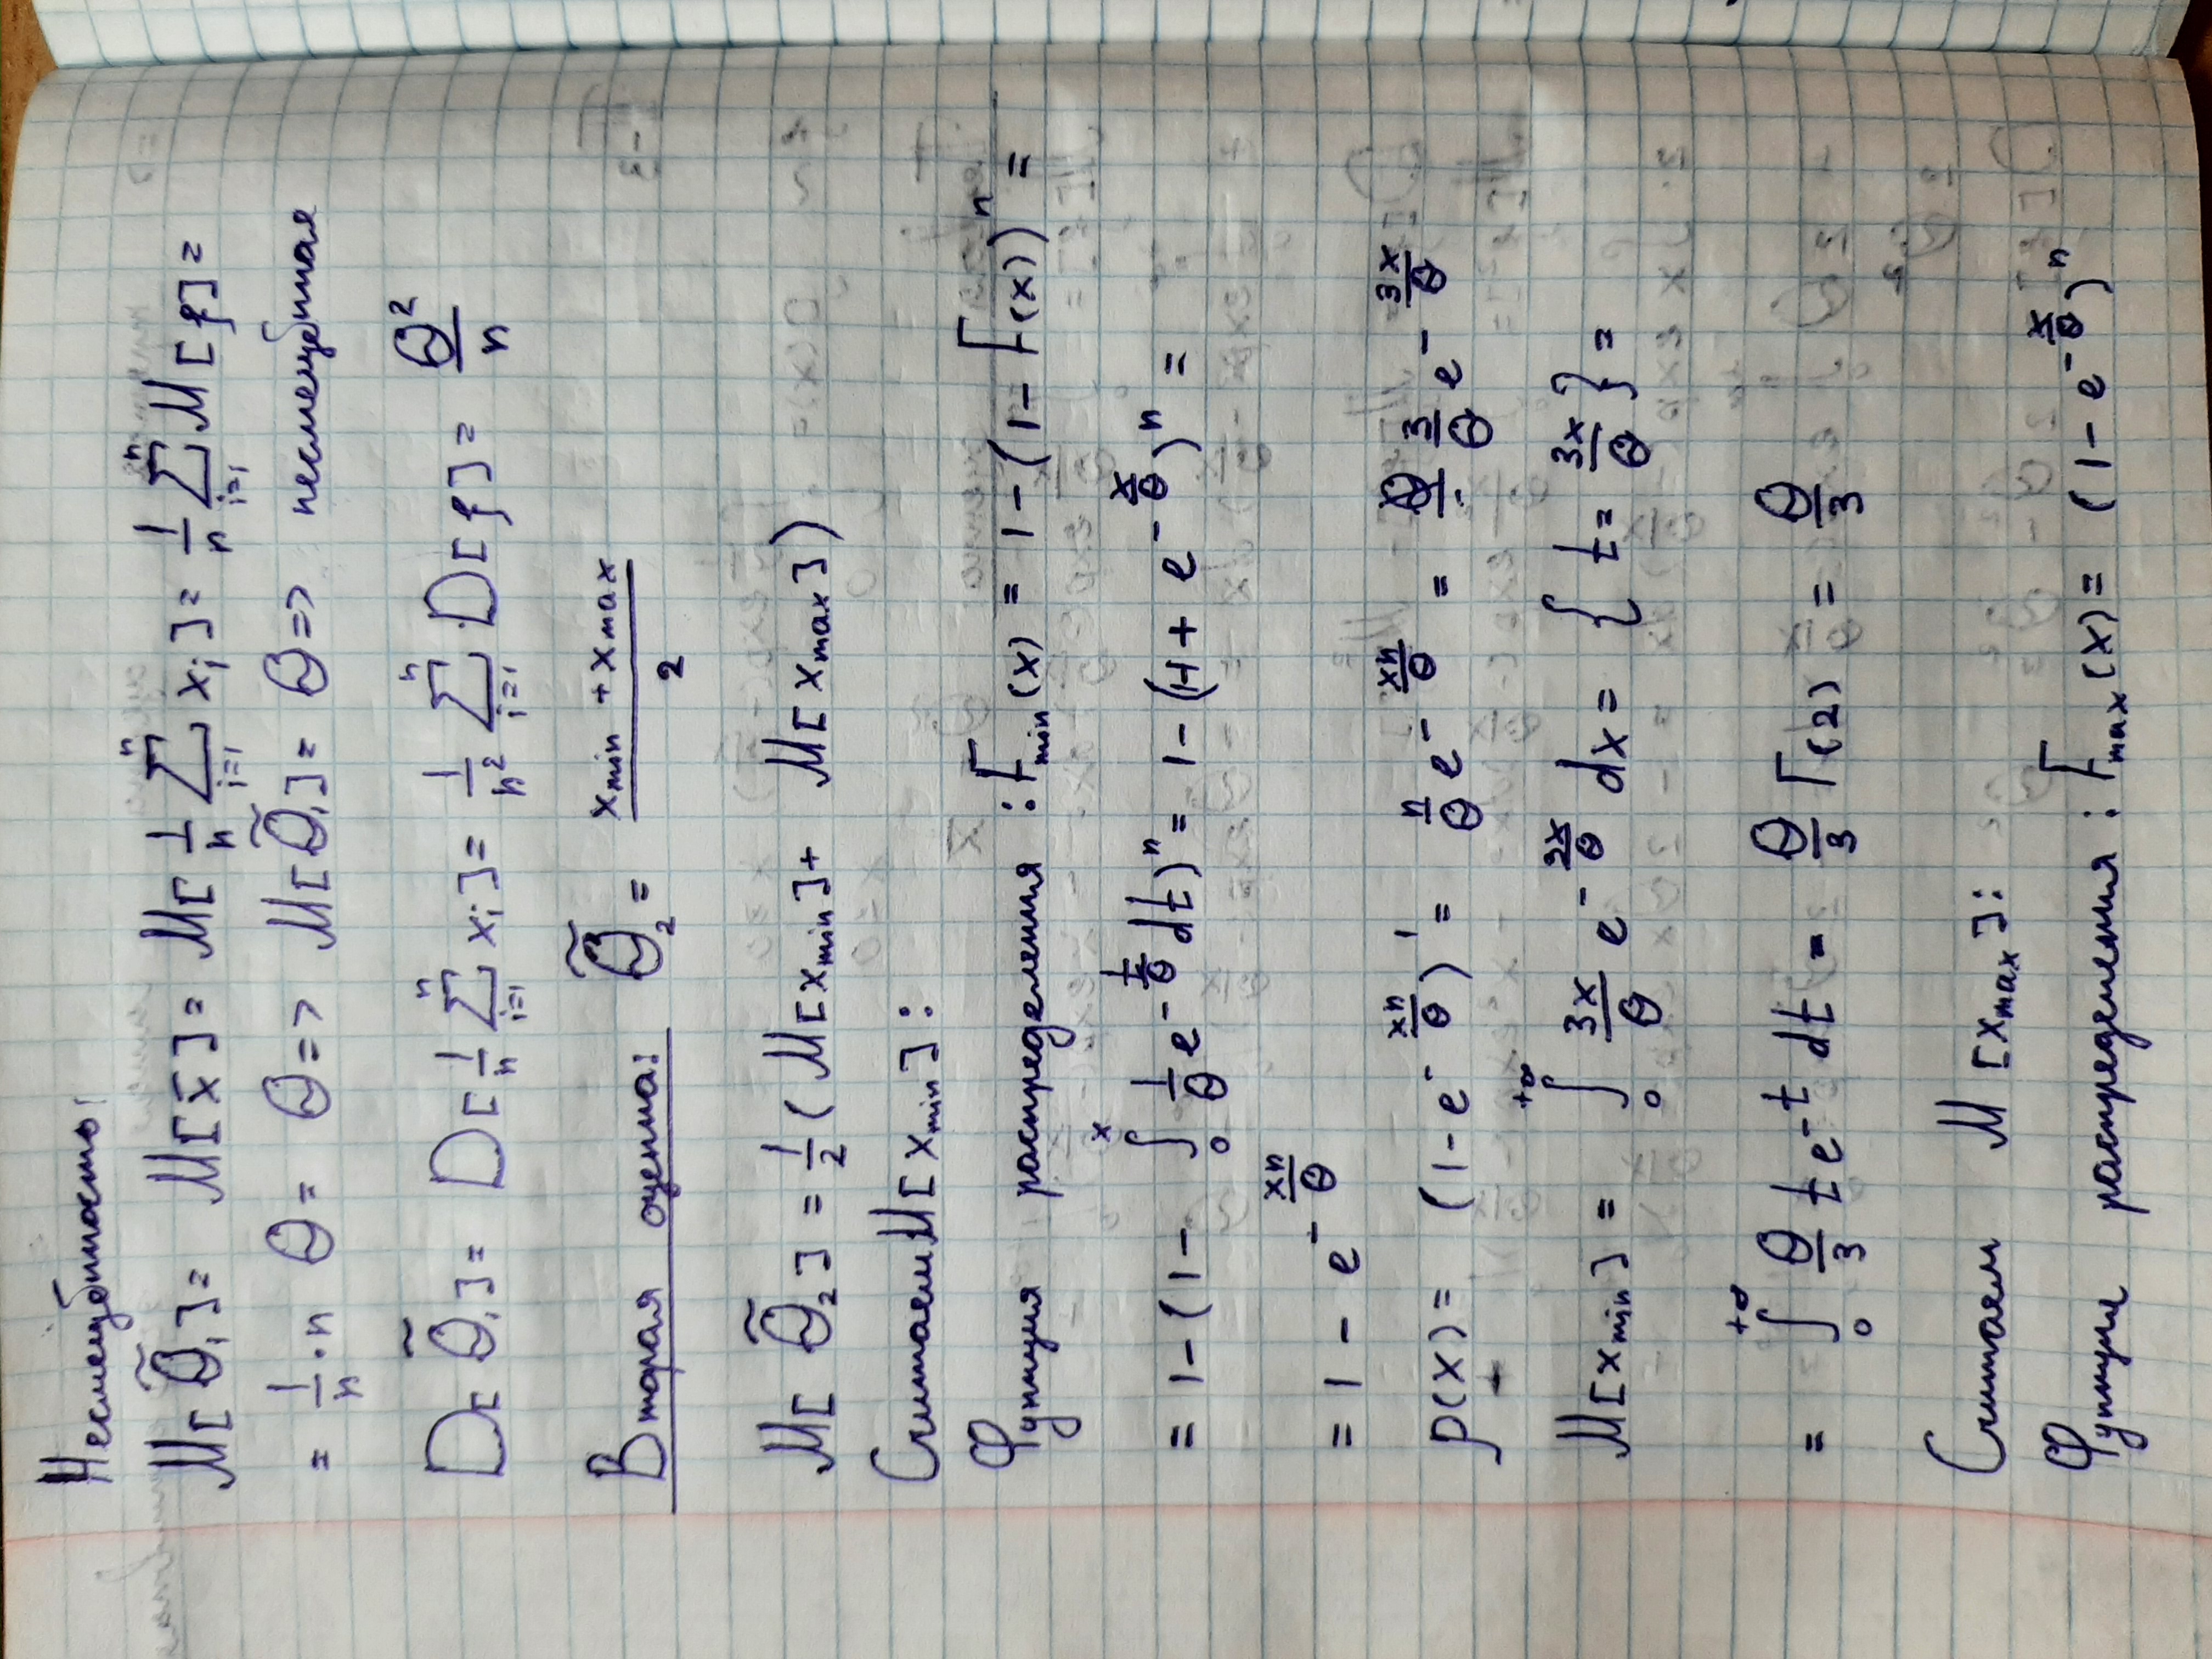 Несмещённость:
M[θ̃₁] = M[x̄] = M[1/n ∑_{i=1}^{n} x_i] = 1/n ∑_{i=1}^{n} M[ξ] =
= 1/n · n θ = θ => M[θ̃₁] = θ => несмещённая
D[θ̃₁] = D[1/n ∑_{i=1}^{n} x_i] = 1/n² ∑_{i=1}^{n} D[ξ] = θ²/n
Вторая оценка: θ̃₂ = (x_min + x_max)/2
M[θ̃₂] = 1/2 (M[x_min] + M[x_max])
Считаем M[x_min]:
Функция распределения: F_min(x) = 1 - (1 - F(x))^n =
= 1 - (1 - ∫_0^x 1/θ e^{-t/θ} dt)^n = 1 - (1-1 + e^{-x/θ})^n =
= 1 - e^{-xn/θ}
p(x) = (1 - e^{-xn/θ})' = n/θ e^{-xn/θ} = 3/θ e^{-3x/θ}
M[x_min] = ∫_0^{+∞} 3x/θ e^{-3x/θ} dx = {t = 3x/θ} =
= ∫_0^{+∞} θ/3 t e^{-t} dt = θ/3 Γ(2) = θ/3
Считаем M[x_max]:
Функция распределения: F_max(x) = (1 - e^{-x/θ})^n